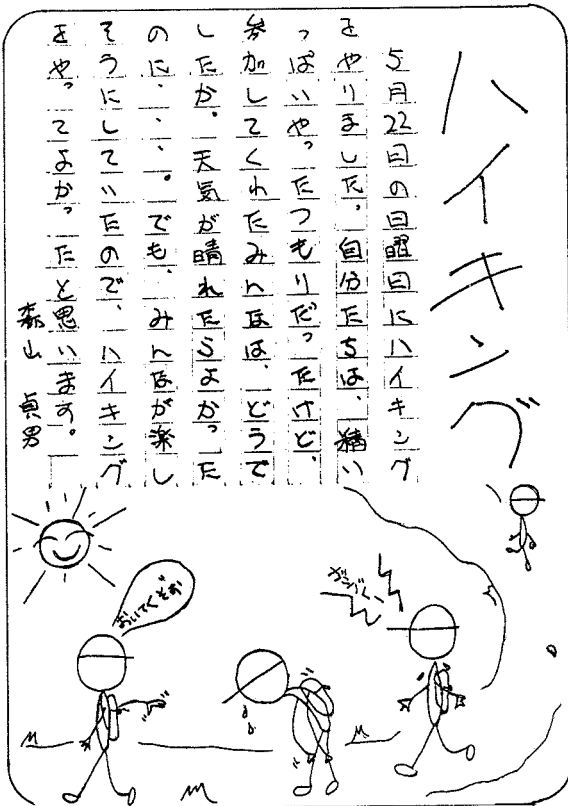 ハイキング
5月22日の日曜日にハイキング
をやりました。自分たちは、精い
っぱいやったつもりだったけど、
参加してくれたみんなは、どうで
したか。天気が晴れたらよかった
のに、、、。でも、みんなが楽し
そうにしていたので、ハイキング
をやってよかったと思います。
森山 貞男
おいてくぞぉ